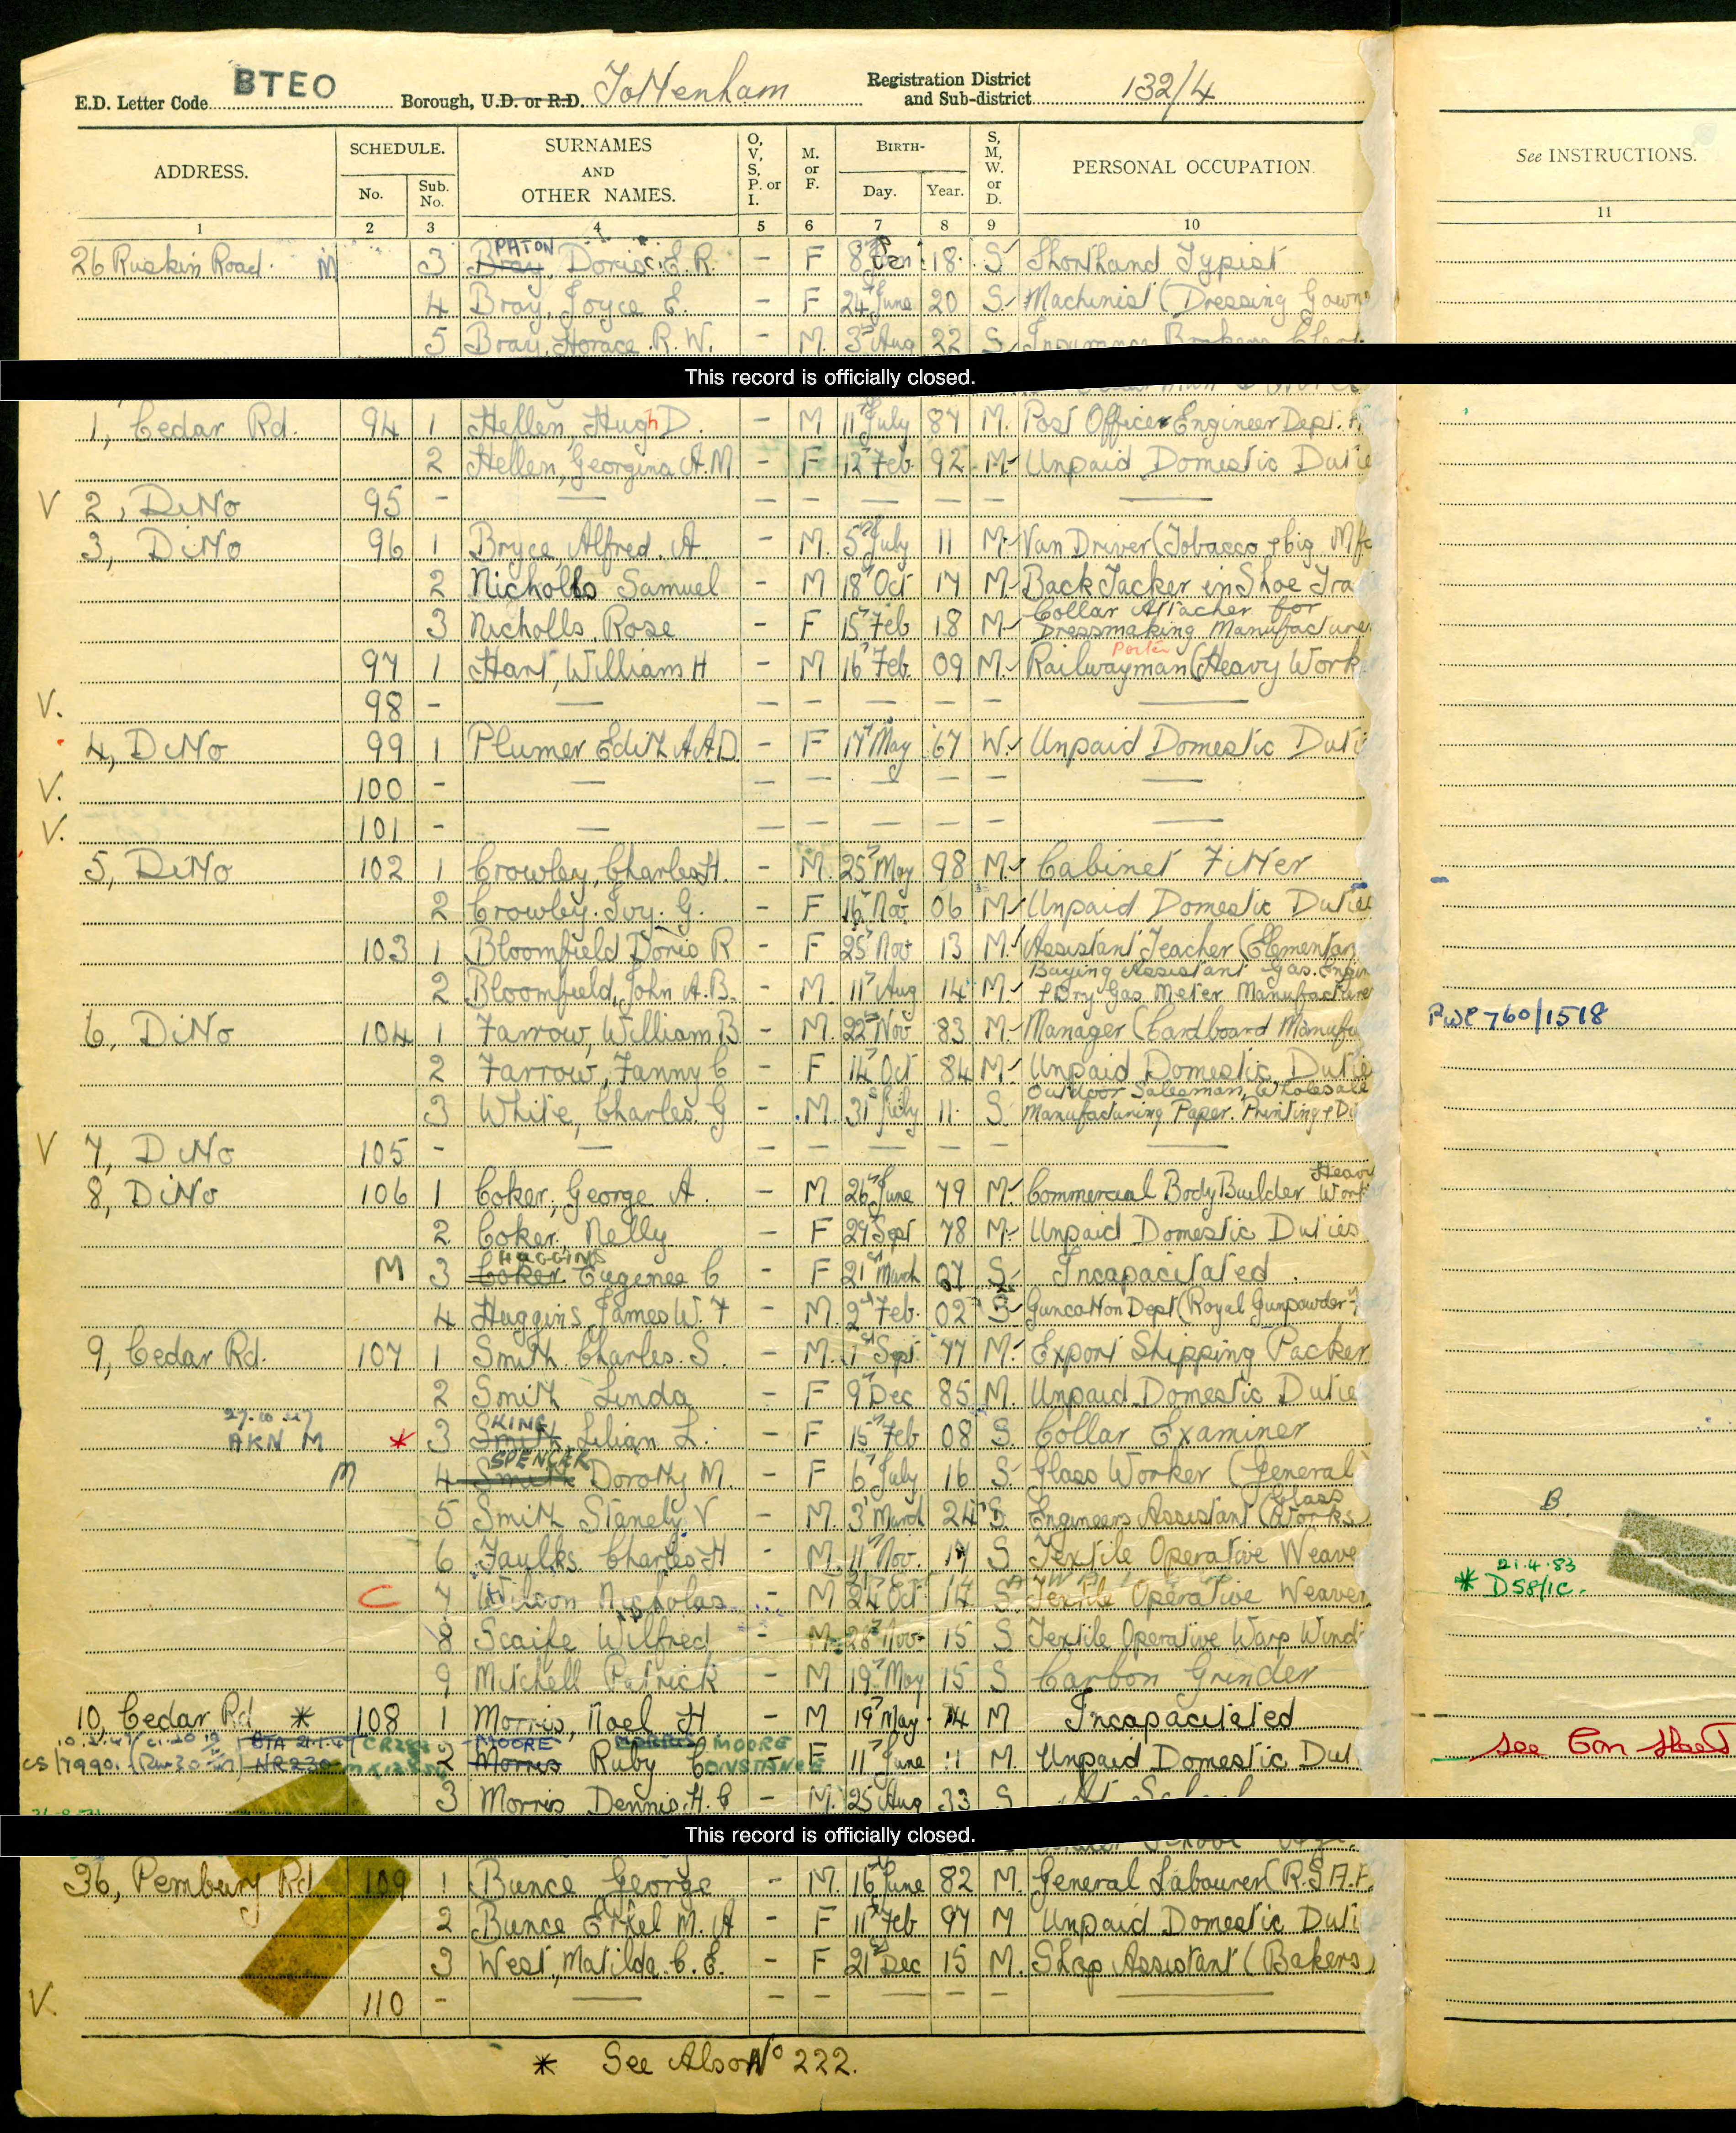 E.D. Letter Code BTEO Borough, U.D. or R.D. Tottenham Registration District and Sub-district 132/4
ADDRESS. SCHEDULE. No. Sub. No. SURNAMES AND OTHER NAMES. O, V, S, P. or I. M. or F. BIRTH- Day. Year. S, M, W. or D. PERSONAL OCCUPATION. See INSTRUCTIONS.
1 2 3 4 5 6 7 8 9 10 11
PATON
26 Ruskin Road. M 3 Bray, Doris C. E. R. - F 8 18 S Shorthand Typist
4 Bray, Joyce E. - F 24 June 20 S Machinist (Dressing Gowns
5 Bray, Horace R. W. - M. 3 Aug 22 S Insurance Brokers Clerk
This record is officially closed.
1, Cedar Rd. 94 1 Hellen, Hugh D. - M 11 July 87 M. Post Office Engineer Dept.
2 Hellen, Georgina A. M - F 12 Feb 92 M Unpaid Domestic Dutie
V 2, DiNo 95 - — - - — - - —
3, DiNo 96 1 Bryce, Alfred. A - M. 5th July 11 M Van Driver (Tobacco & Cig Mfc
2 Nicholls Samuel - M 18 Oct 17 M Back Tacker in Shoe Tra
3 Nicholls, Rose - F 15 Feb 18 M Collar Attacher for Dressmaking Manufacture
Porter
97 1 Hart, William H - M 16 Feb. 09 M Railwayman (Heavy Work
V. 98 - — - - — - - —
4, DiNo 99 1 Plumer Edith A A D. - F 17 May 67 W. Unpaid Domestic Duti
V. 100 - — - - — - - —
V. 101 - — - - — - - —
5, DiNo 102 1 Crowley, Charles H. - M. 25 May 98 M Cabinet Fitter
2 Crowley. Ivy. G. - F 16 Nov 06 M Unpaid Domestic Duties
103 1 Bloomfield Doris R - F 25 Nov 13 M Assistant Teacher (Elementary
2 Bloomfield, John A. B. - M 11 Aug 14 M Buying Assistant Gas. Engin & Dry Gas Meter Manufacture
6, DiNo 104 1 Farrow, William B - M. 22 Nov 83 M Manager (Cardboard Manufa
760/1518
2 Farrow, Fanny C - F 14 Oct 84 M Unpaid Domestic Dutie
3 White, Charles. G - M. 31st July 11 S. Outdoor Salesman, Wholesale Manufacturing Paper. Printing & Di
V 7, DiNo 105 - — - - — - - —
8, DiNo 106 1 Coker, George A. - M 26 June 79 M Commercial Body Builder Heavy Work
2 Coker, Nelly - F 29 Sept 78 M Unpaid Domestic Duties
HUGGINS
M 3 Coker Eugenee C - F 21st March 07 S Incapacitated.
4 Huggins, James W. F - M. 2nd Feb. 02 S Guncotton Dept (Royal Gunpowder
9, Cedar Rd. 107 1 Smith Charles. S. - M. 1st Sept 77 M. Export Shipping Packer
2 Smith Linda - F 9 Dec 85 M. Unpaid Domestic Dutie
KING
AKN M * 3 Smith, Lilian L. - F 15 Feb 08 S. Collar Examiner
SPENCER
M 4 Smith Dorothy M. - F 6 July 16 S. Glass Worker (General
5 Smith Stanely V - M. 3 March 24 S. Engineers Assistant (Glass Works)
B
6 Faulks Charles H - M. 11 Nov. 17 S Textile Operative Weave
21.4.83
* D58/1C.
C 7 Wilson Nicholas - M 24 Oct 14 S. Textile Operative Weaver
8 Scaife Wilfred - M. 26 Nov 15 S Textile Operative Warp Windi
9 Mitchell Patrick - M 19 May 15 S Carbon Grinder
10, Cedar Rd * 108 1 Morris, Noel H - M 19 May 14 M Incapacitated
See Con Sheet
MOORE MOORE
NR230 2 Morris Ruby CONSTANCE - F 11 June 11 M. Unpaid Domestic Dut
3 Morris Dennis. H. C - M. 25 Aug 33 S At School
This record is officially closed.
36, Pembury Rd 109 1 Bunce George - M. 16 June 82 M. General Labourer (R.S.A.F.
2 Bunce Ethel M. A - F 11 Feb 97 M Unpaid Domestic Duti
3 West, Matilda. C. E. - F 21st Dec 15 M. Shop Assistant (Bakers)
V. 110 - — - - — - - —
* See Also No 222.